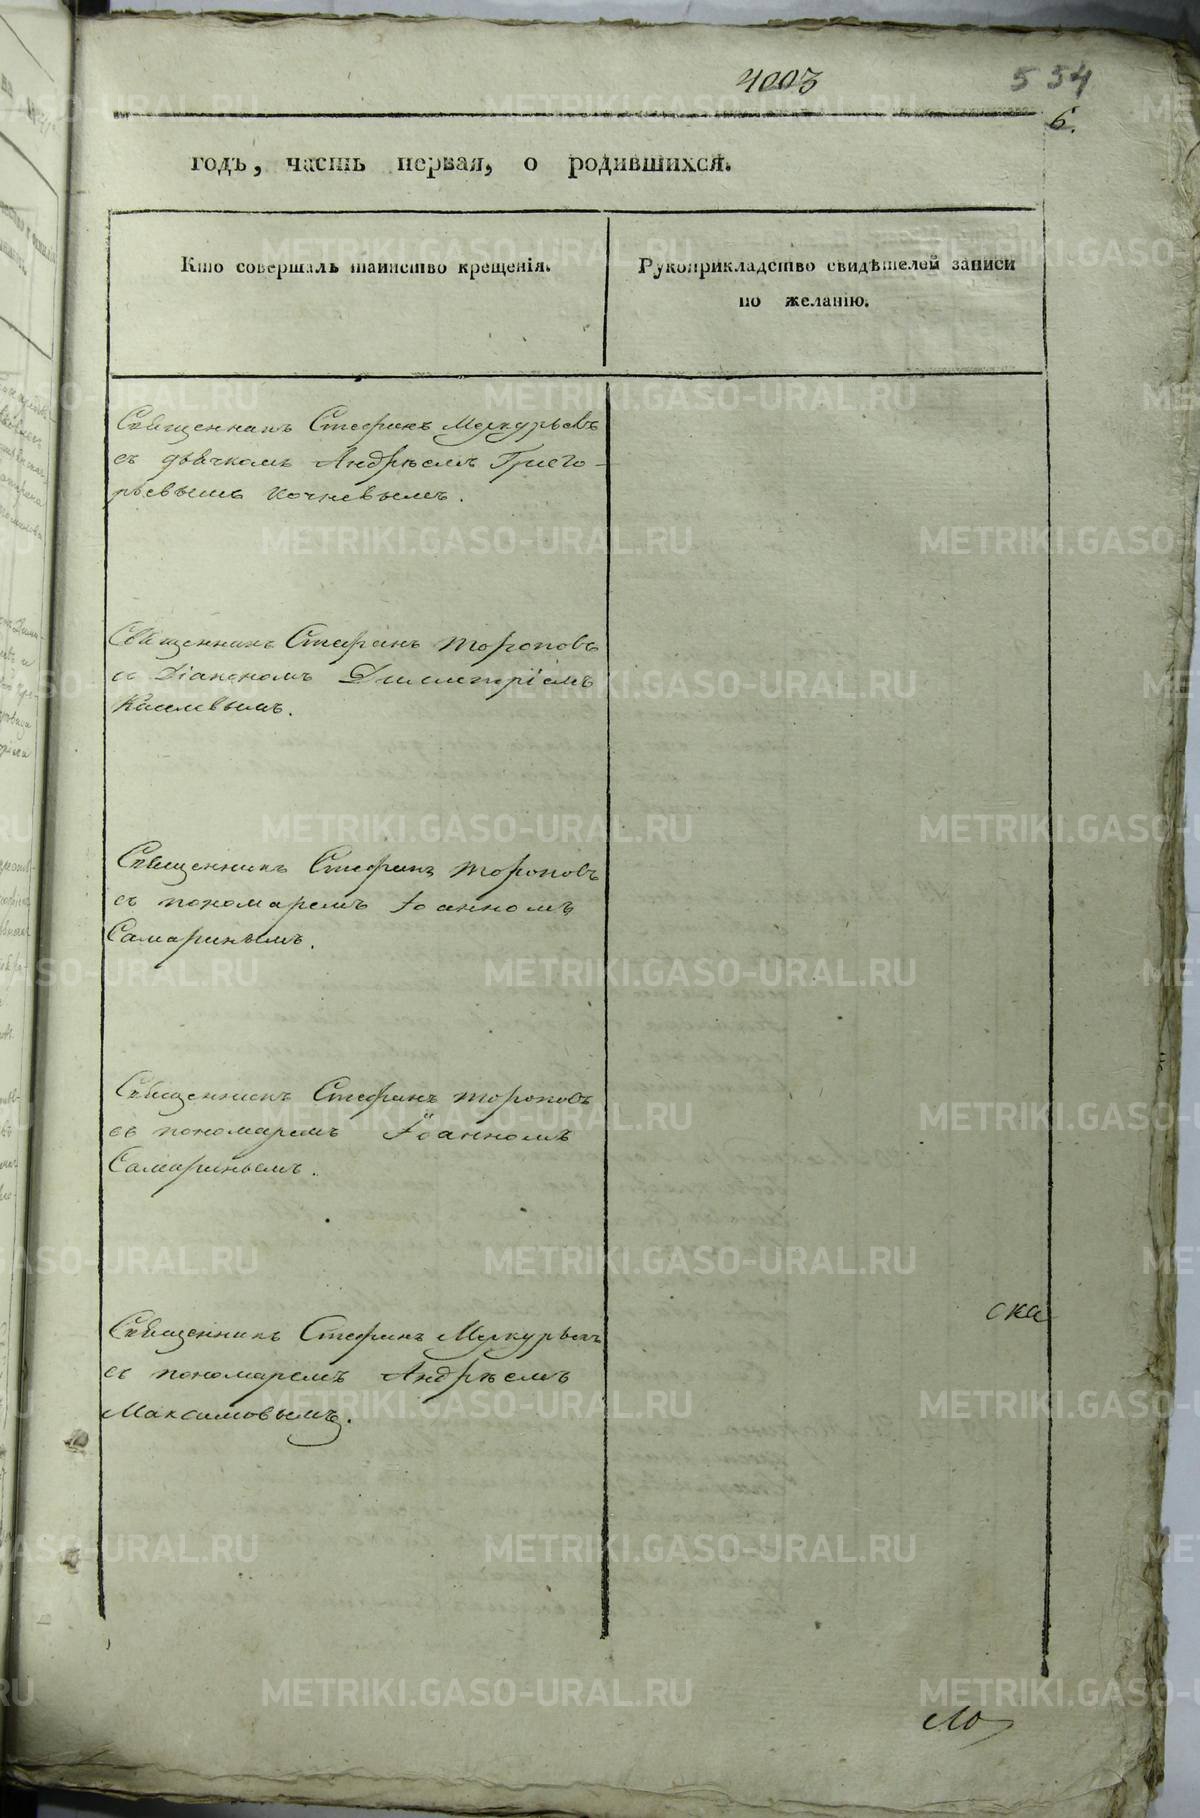 4003
554
6.
годъ, часть первая, о родившихся.
Кто совершалъ таинство крещенія.
Рукоприкладство свидѣтелей записи
по желанію.
Священникъ Стефанъ Меркурьевъ
съ дьячкомъ Андрѣемъ Григо-
рьевымъ Кочневымъ.
Священникъ Стефанъ Тороповъ
съ Діакономъ Димитріемъ
Киселевымъ.
Священникъ Стефанъ Тороповъ
съ пономаремъ Іоанномъ
Самаринымъ.
Священникъ Стефанъ Тороповъ
съ пономаремъ Іоанномъ
Самаринымъ.
ска
Священникъ Стефанъ Меркурьевъ
съ пономаремъ Андрѣемъ
Максимовымъ.
METRIKI.GASO-URAL.RU